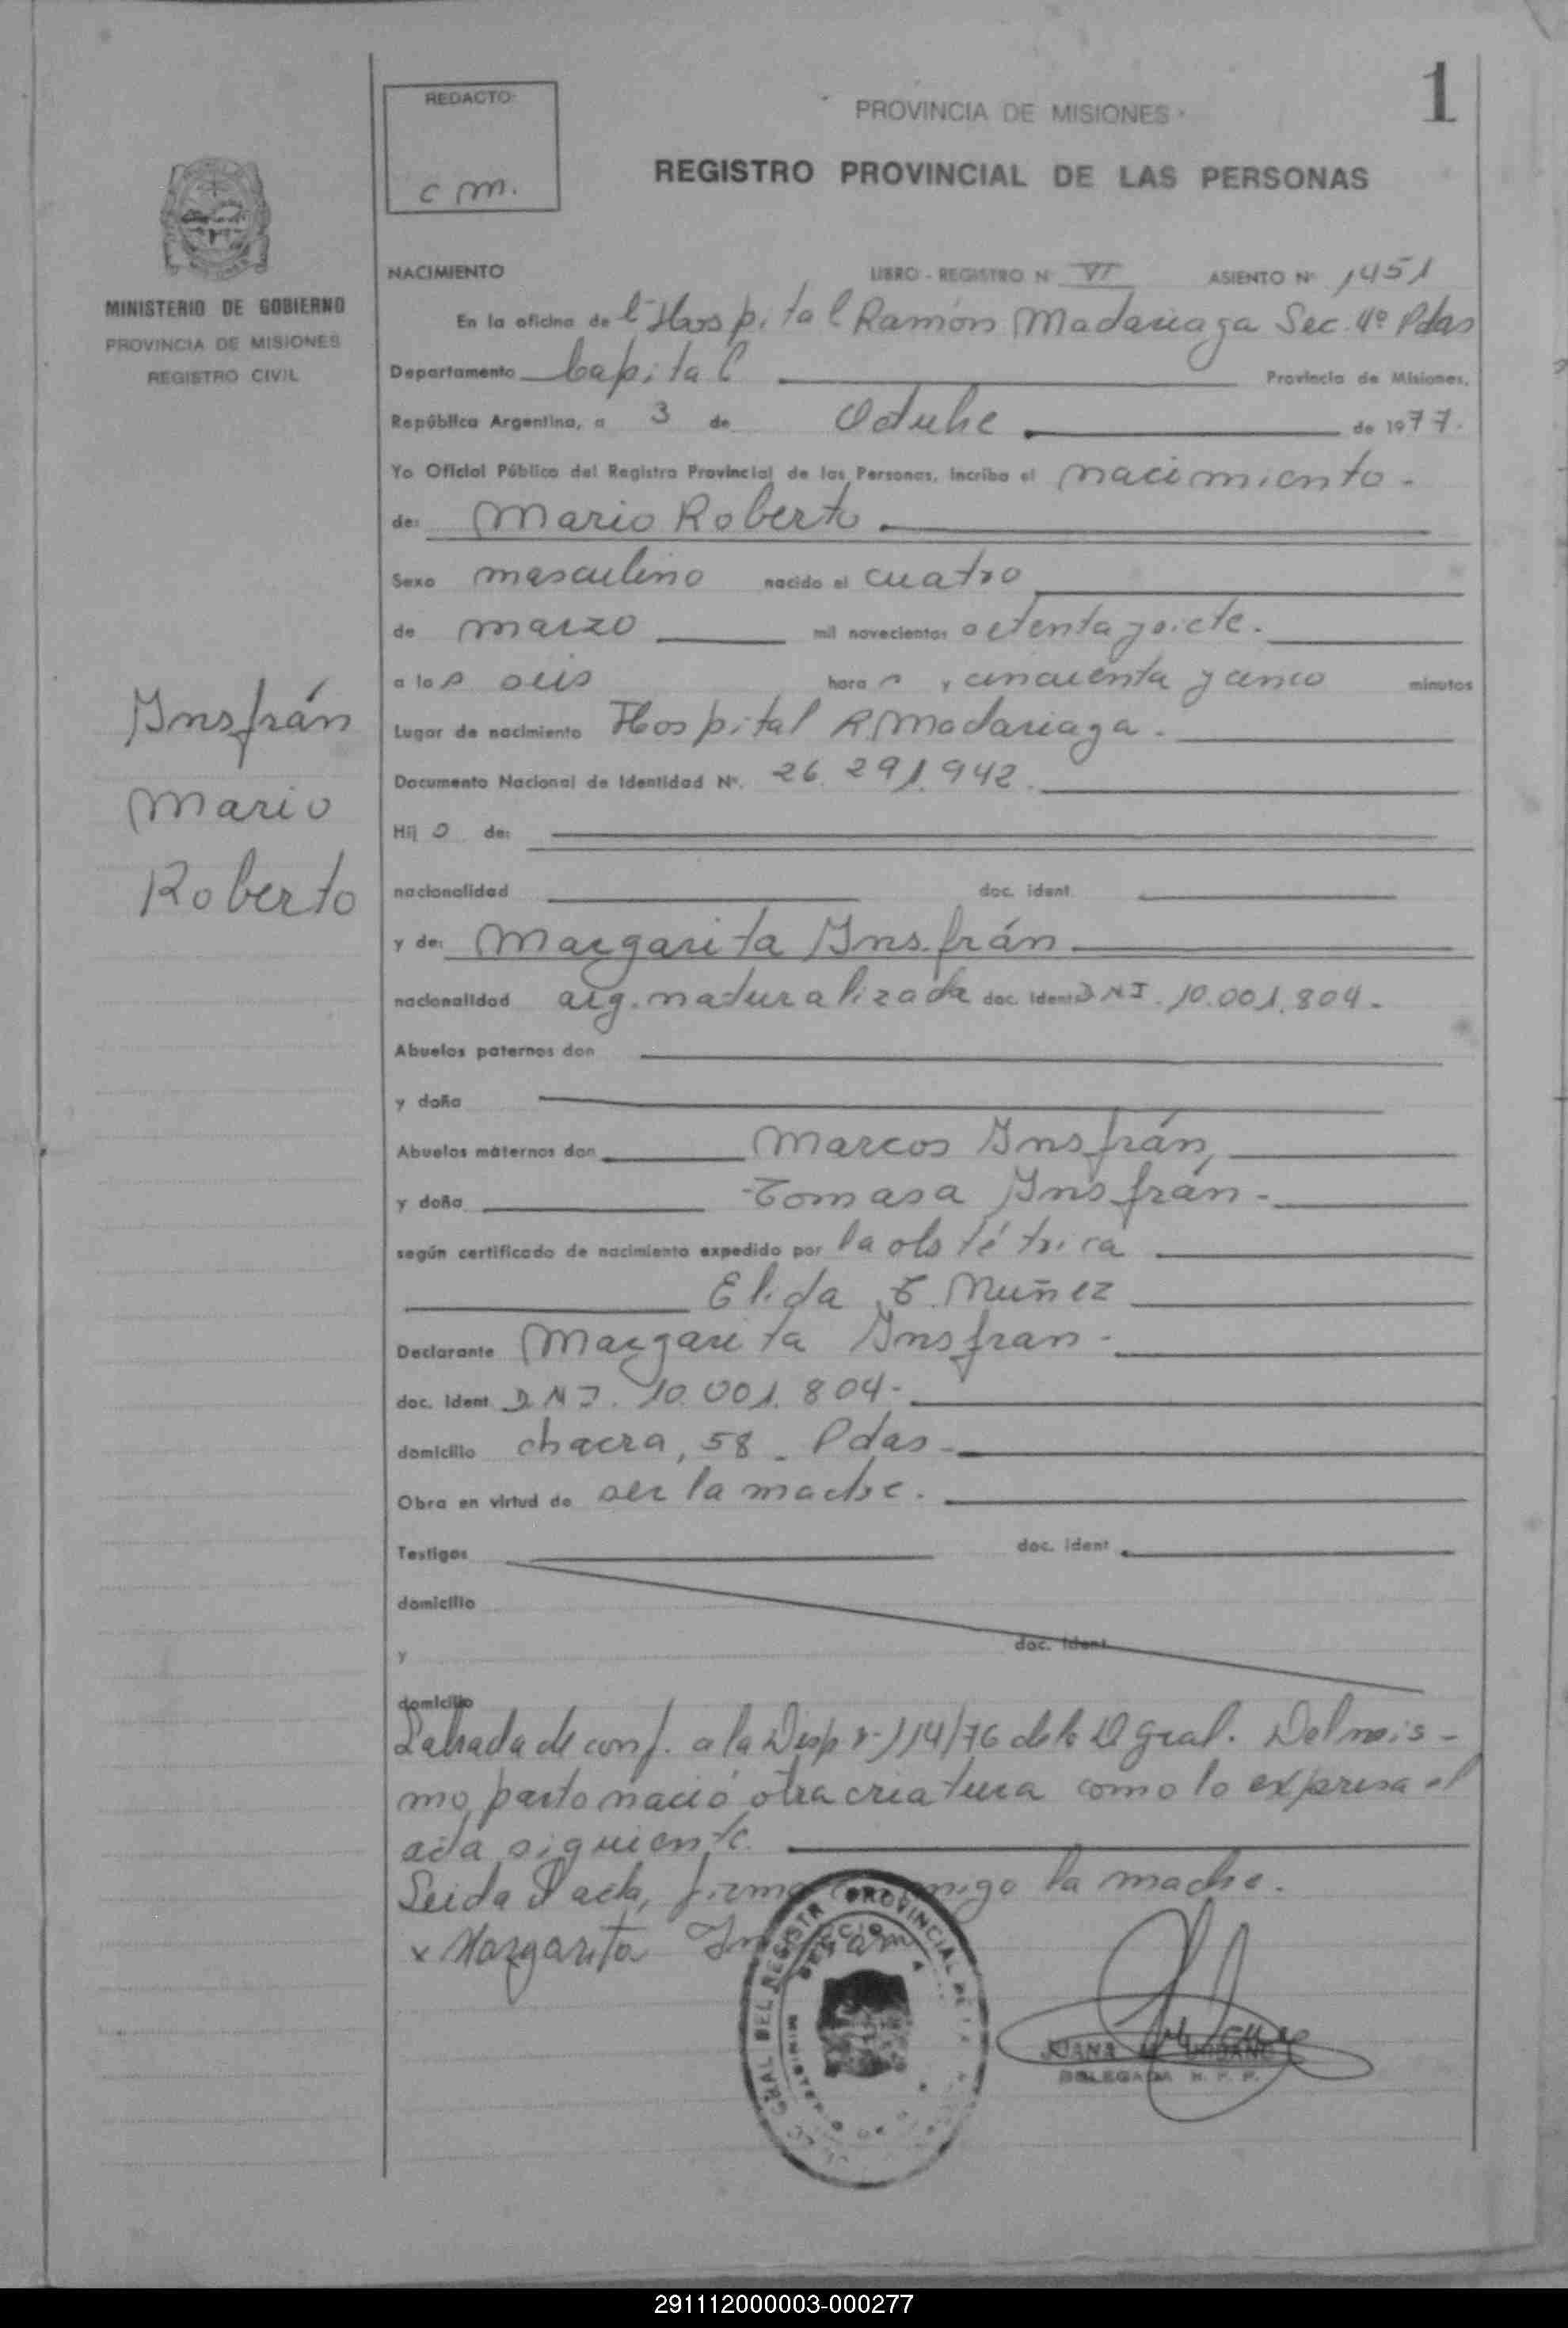 1
REDACTO:
c m.
PROVINCIA DE MISIONES
REGISTRO PROVINCIAL DE LAS PERSONAS
MINISTERIO DE GOBIERNO
PROVINCIA DE MISIONES
REGISTRO CIVIL
NACIMIENTO LIBRO - REGISTRO Nº VI ASIENTO Nº 1451
En la oficina de l Hospital Ramón Madariaga Sec. 4º Pdas
Departamento Capital Provincia de Misiones,
República Argentina, a 3 de Octubre de 1977.
Yo Oficial Público del Registro Provincial de las Personas, incribo el nacimiento.
de: Mario Roberto
Sexo masculino nacido el cuatro
de marzo mil novecientos setenta y siete.
a las seis horas y cincuenta y cinco minutos
Lugar de nacimiento Hospital R Madariaga.
Documento Nacional de Identidad Nº. 26.291.942.
Hijo de:
nacionalidad doc. ident.
y de: Margarita Insfrán
nacionalidad arg. naturalizada doc. ident. DNI. 10.001.804.
Abuelos paternos don
y doña
Abuelos maternos don Marcos Insfrán,
y doña Tomasa Insfrán.
según certificado de nacimiento expedido por la obstétrica
Elida E. Muñez
Declarante Margarita Insfran.
doc. Ident. D.N.I. 10.001.804.
domicilio chacra, 58. Pdas.
Obra en virtud de ser la madre.
Testigos doc. ident.
domicilio
y doc. ident.
domicilio
Labrada de conf. a la Disp. 114/76 de la D gral. Del mis-
mo parto nació otra criatura como lo expresa el
acta siguiente.
Leida el acta, firma conmigo la madre.
x Margarita Insfran
Insfrán
Mario
Roberto
GRAL. DEL REGISTR PROVINCIAL DE LA
JUANA URBANO
DELEGADA R. P. P.
291112000003-000277